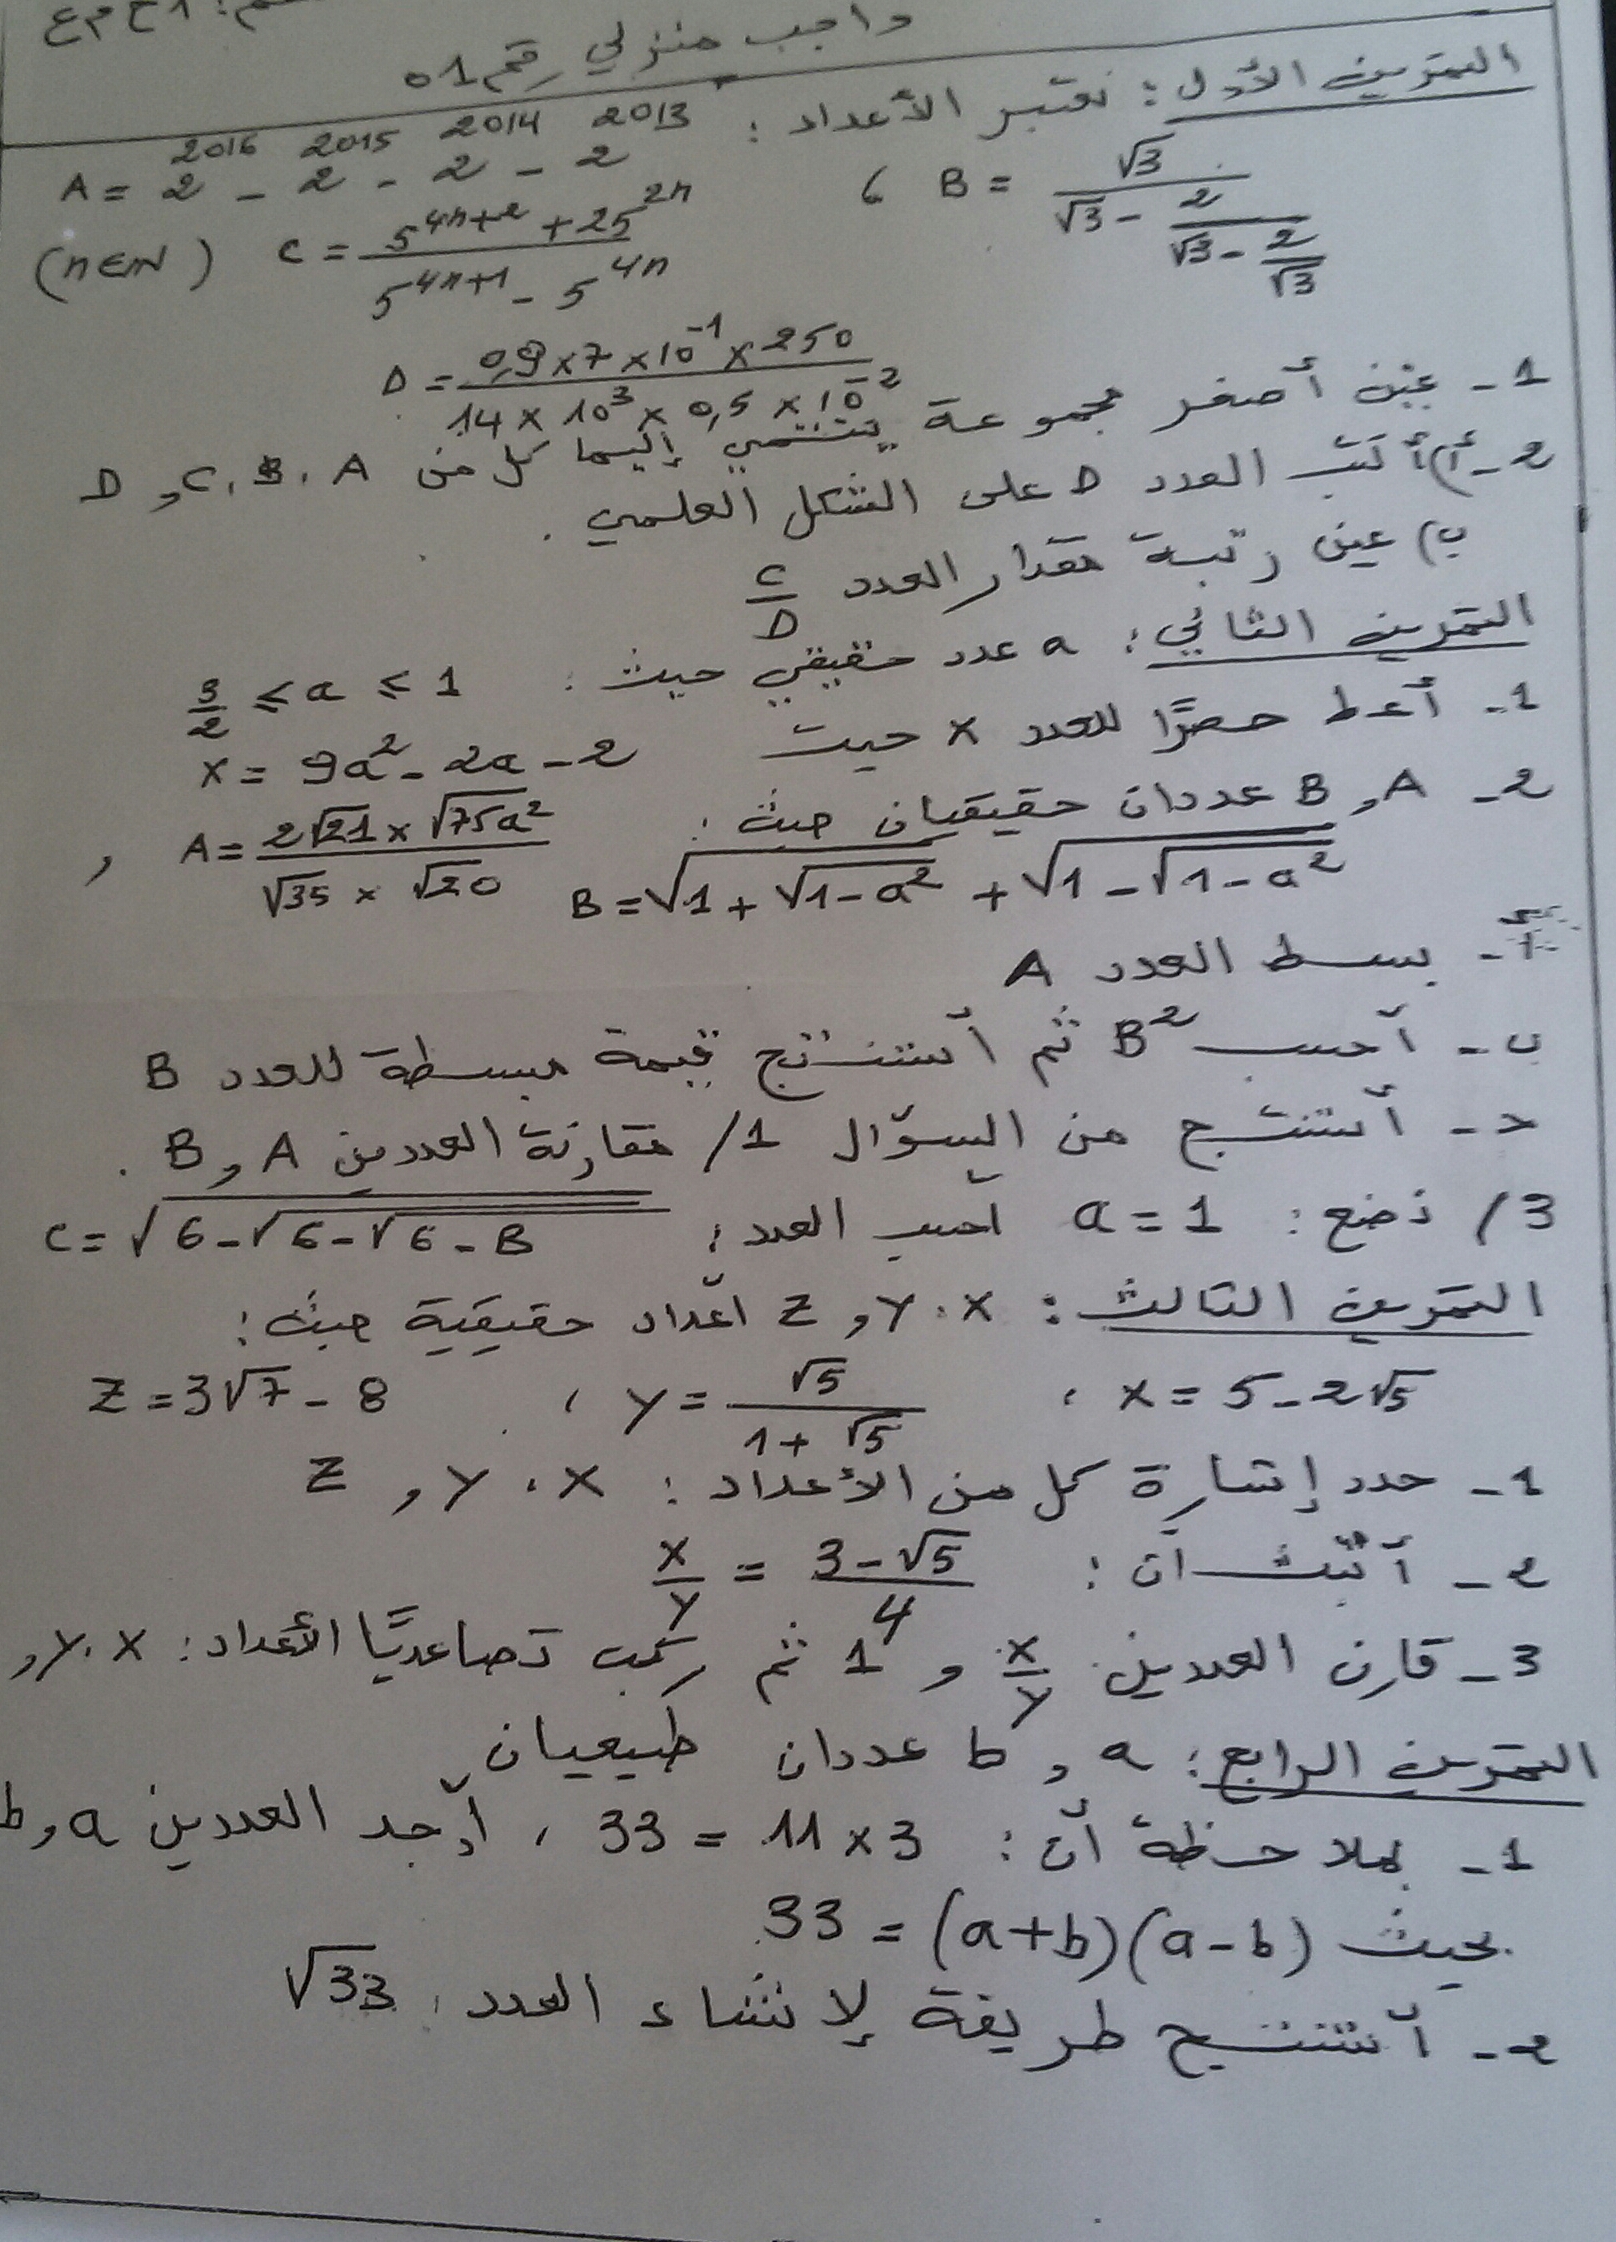 واجب منزلي رقم 01
التمرين الأول: نعتبر الأعداد:
A = 2^2016 - 2^2015 - 2^2014 - 2^2013 ، B = √3/(√3 - 2/(√3 - 2/√3))
(n∈ℕ) C = (5^(4n+2) + 25^(2n))/(5^(4n+1) - 5^(4n))
D = (0,9 × 7 × 10^-1 × 250)/(14 × 10^3 × 0,5 × 10^-2)
1- عيّن أصغر مجموعة ينتمي إليها كل من A ، B ، C و D
2- أ) أكتب العدد D على الشكل العلمي.
ب) عين رتبة مقدار العدد C/D
التمرين الثاني: a عدد حقيقي حيث: 3/2 ≤ a ≤ 1
1- أعط حصرًا للعدد x حيث x = 9a² - 2a - 2
2- A و B عددان حقيقيان حيث:
A = (2√21 × √75a²)/(√35 × √20) , B = √(1 + √(1-a²)) + √(1 - √(1-a²))
أ- بسط العدد A
ب- أحسب B² ثم أستنتج قيمة مبسطة للعدد B
ج- أستنتج من السؤال 1/ مقارنة العددين A و B.
3/ نضع: a = 1 أحسب العدد: C = √(6 - √(6 - √(6 - B)))
التمرين الثالث: x ، y و z أعداد حقيقية حيث:
x = 5 - 2√5 ، y = √5/(1 + √5) ، z = 3√7 - 8
1- حدد إشارة كل من الأعداد: x ، y و z
2- أثبت أن: x/y = (3 - √5)/4
3- قارن العددين x/y و 1 ثم رتب تصاعديًا الأعداد: x ، y و
التمرين الرابع: a و b عددان طبيعيان
1- بملاحظة أن: 33 = 11 × 3 ، أوجد العددين a و b
بحيث 33 = (a+b)(a-b)
2- أستنتج طريقة لإنشاء العدد √33.